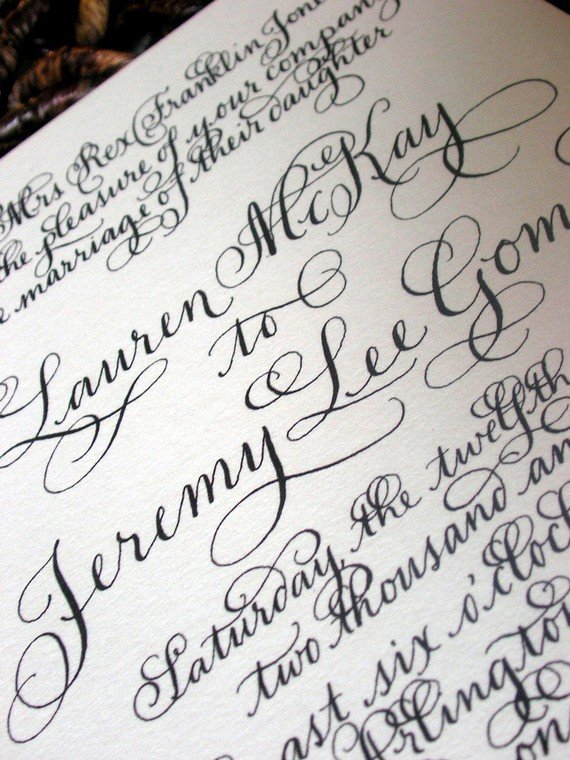 Mrs Rex Franklin Jone
the pleasure of your company
e marriage of their daughter
Lauren McKay
to
Jeremy Lee Gom
Saturday, the twelfth
two thousand an
ast six o'cloc
Arlington
on